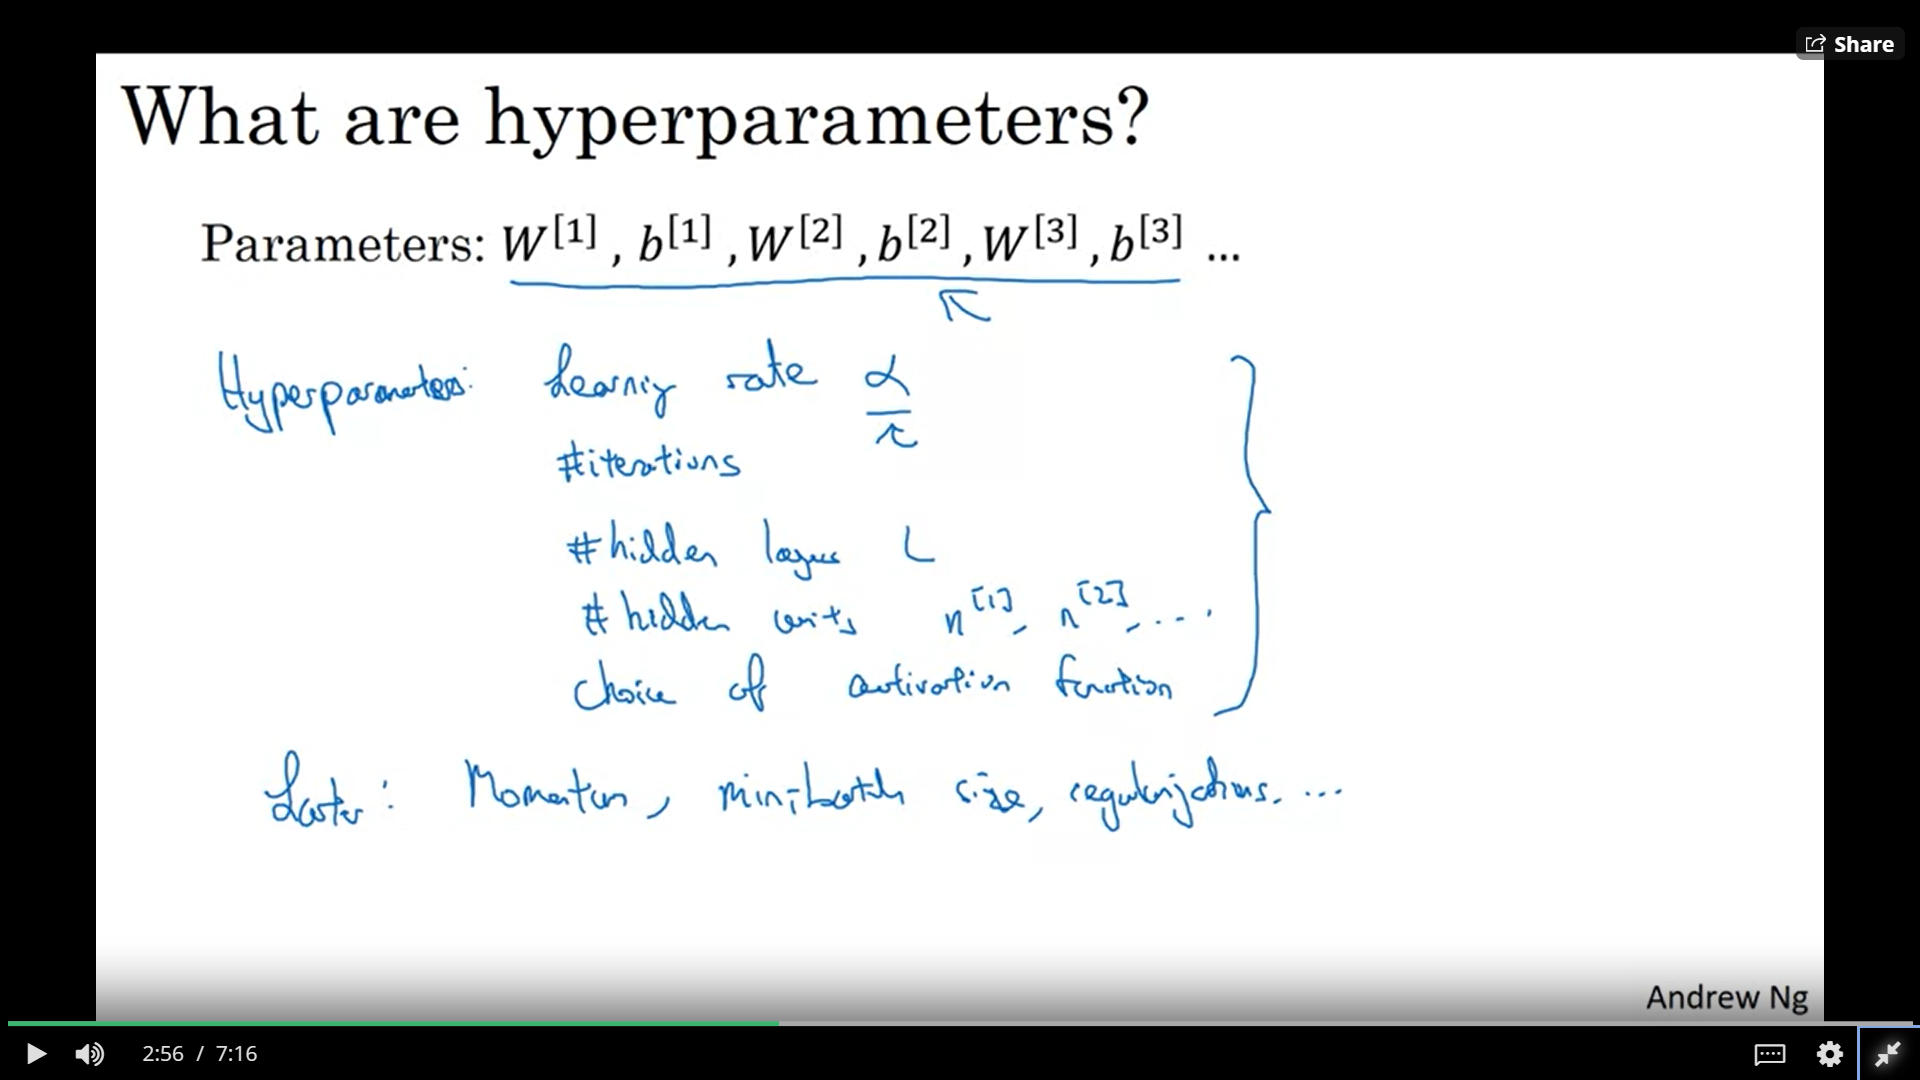 Share
What are hyperparameters?
Parameters: W[1] , b[1] , W[2] , b[2] , W[3] , b[3] ...
Hyperparameters: Learning rate α
#iterations
#hidden layers L
#hidden units n[1], n[2], ...
Choice of activation function
Later: Momentum, mini-batch size, regularizations, ...
Andrew Ng
2:56 / 7:16